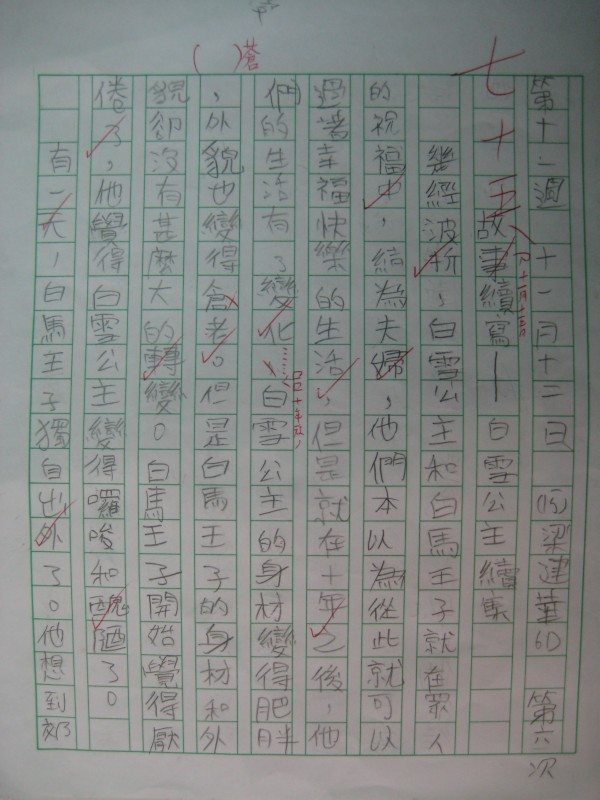 第十一週 十一月十二日 (15) 梁建華 6D 第六次
七十五
故事續寫—白雪公主續集
幾經波折,白雪公主和白馬王子就在眾人
的祝福中,結為夫婦,他們本以為從此就可以
過著幸福快樂的生活,但是就在十年之後,他
們的生活有了變化,白雪公主的身材變得肥胖
,外貌也變得倉老。但是白馬王子的身材和外
貌卻沒有甚麼大的轉變。白馬王子開始覺得厭
倦了,他覺得白雪公主變得囉唆和醜陋了。
有一天,白馬王子獨自出外了。他想到郊
( )蒼